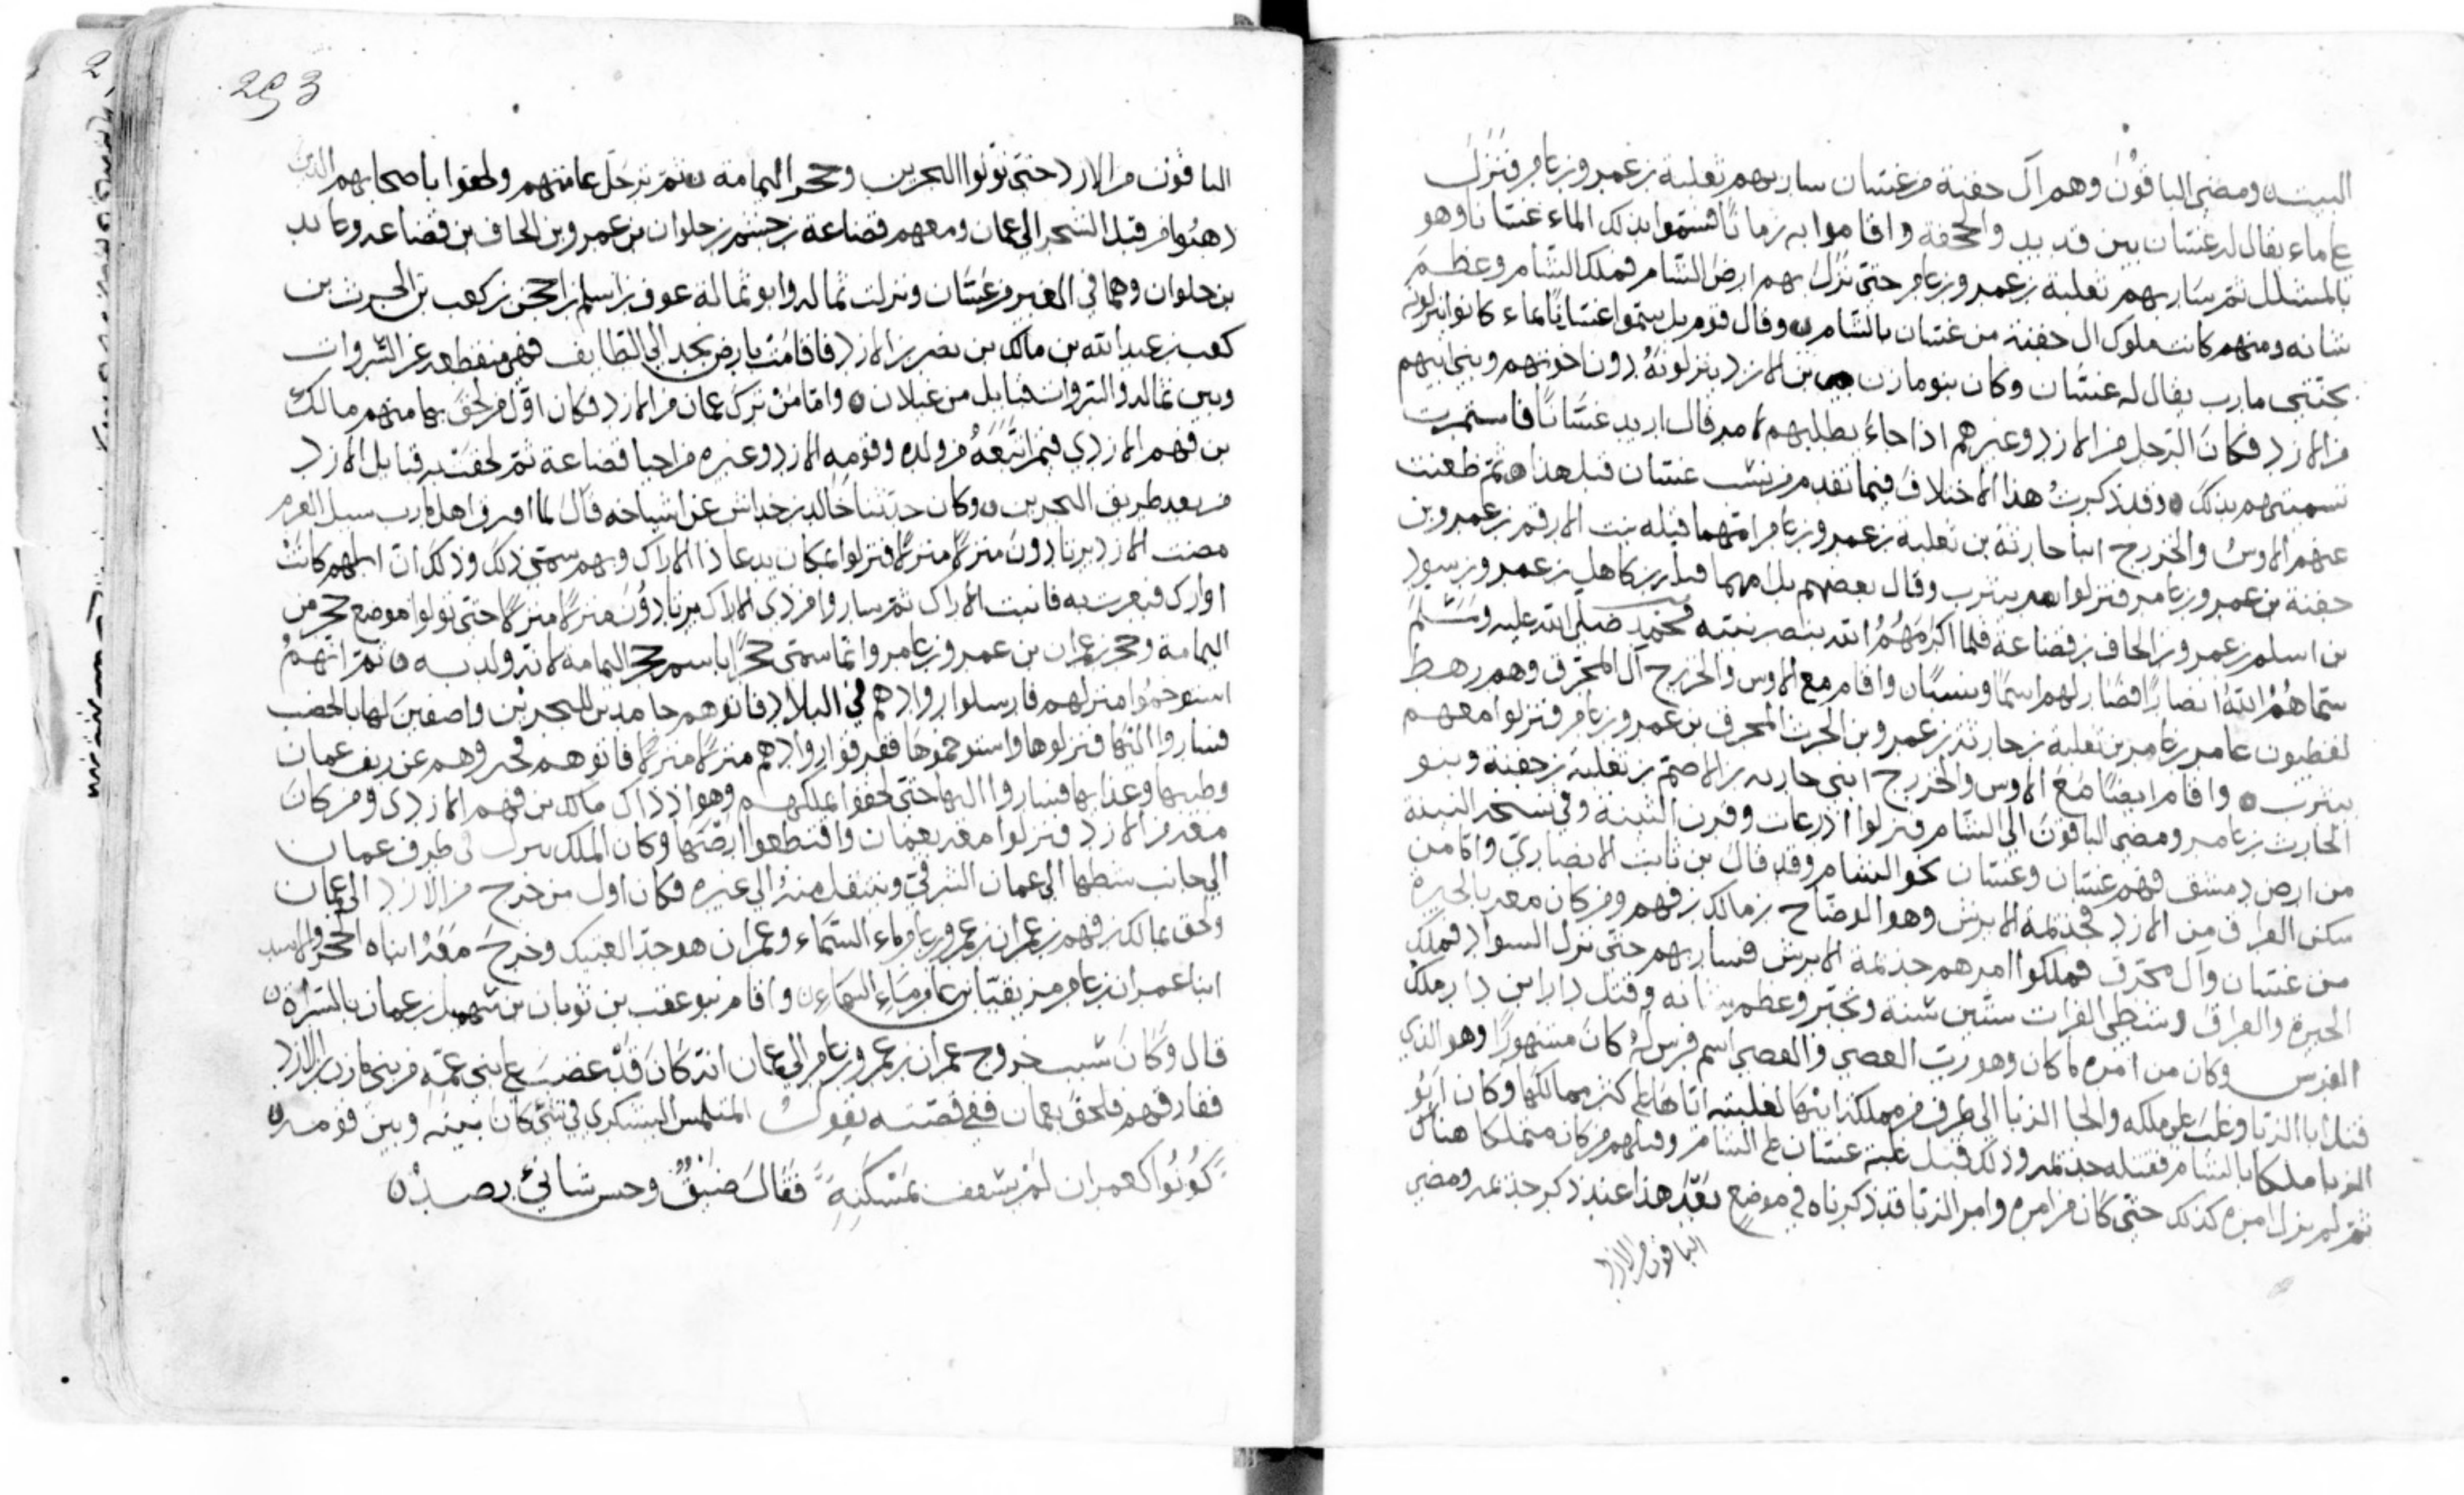 البيت ومضى الباقون وهم آل جفنة من غسان سار بهم ثعلبة بن عمرو بن عامر فنزل
على ماء يقال له غسان بين قديد والجحفة واقاموا به زمانًا فسموا بذلك الماء غسانا وهو
بالمشلل ثم سار بهم ثعلبة بن عمرو بن عامر حتى نزل بهم ارض الشام فملك الشام وعظم
شانه ومنهم كانت ملوك ال جفنة من غسان بالشام وقال قوم بل سموا غسانًا بماء كانوا نزلوه
بجنبي مارب يقال له غسان وكان بنو مازن بن الازد ينزلونه دون اخوتهم وبني ابيهم
من الازد فكان الرجل من الازد وغيرهم اذا جاء يطلبهم لامر قال اريد غسانًا فاستمرت
تسميتهم بذلك وقد ذكرت هذا الاختلاف فيما تقدم من نسب غسان قبل هذا ثم ظعنت
عنهم الاوس والخزرج ابنا حارثة بن ثعلبة بن عمرو بن عامر امهما قيله بنت الارقم بن عمرو بن
جفنة بن عمرو بن عامر فنزلوا يثرب وقال بعضهم بل امهما قيله بنت كاهل بن عمرو بن سود
بن اسلم بن عمرو بن الحاف بن قضاعة فلما اكرمهم الله بنصر نبيه محمد صلى الله عليه وسلم
سماهم الله انصارًا فصار لهم اسمًا ونسبًا واقام مع الاوس والخزرج آل المحرق وهم رهط
لفطيون عامر بن عامر بن ثعلبة بن حارثة بن عمرو بن الحرث المحرق بن عمرو بن عامر فنزلوا معهم
بيثرب واقام ايضًا مع الاوس والخزرج ابني حارثه بنو الاصم بن ثعلبة بن جفنة وبنو
الحارث بن عامر ومضى الباقون الى الشام فنزلوا اذرعات وقرن الثنيه وفي نسخه البثينة
من ارض دمشق فهم غسان وغسان نحو الشام وقد قال بن ثابت الانصاري واما من
سكن العراق من الازد فجذيمة الابرش وهو الوضاح بن مالك بن فهم ومن كان معه بالحيرة
من غسان وآل محرق فملكوا امرهم جذيمة الابرش فسار بهم حتى نزل السواد فملك
الحيرة والعراق وشطي الفرات ستين سنة وتجبر وعظم شانه وقتل دارا بن دارا ملك
الفرس وكان من امره ما كان وهو رب العصى والعصى اسم فرس له كان مشهورًا وهو الذي
قتل ابا الزبا وغلب على ملكه والجا الزبا الى طرف من مملكة ابيها لغلبته اياها على كثر ممالكها وكان ابو
الزبا ملكا بالشام فقتله جذيمه وذلك قبل غلبة غسان على الشام وقبلهم من كان متملكا هناك
ثم لم يزل امره كذلك حتى كان من امره وامر الزبا قد ذكرناه في موضع بعد هذا عند ذكر جذيمه ومضى
الباقون من الازد
293
الباقون من الازد حتى توتوا البحرين وحجر اليمامة ثم ترحل عامتهم ولحقوا باصحابهم الذين
ذهبوا من قبل الشحر الى عمان ومعهم قضاعة بن جشم بن حلوان بن عمرو بن الحاف بن قضاعه وعابد
بن حلوان وهما في العير من غسان ونزلت ثماله وابو ثمالة عوف بن اسلم بن احجن بن كعب بن الحرث بن
كعب بن عبد الله بن مالك بن نصر بن الازد فاقامت بارض نجد الى الطايف فهي منقطعه عن السروات
وبين ثماله والسروات قبايل من عيلان واما من ترك عمان من الازد فكان اول من لحق بها منهم مالك
بن فهم الازدي فيمن اتبعه من ولده وقومه الازد وغيره من احيا قضاعة ثم لحقت به قبايل الازد
من بعد طريق البحرين وكان حدثنا خالد بن خداش عن اشياخه قال لما افترق اهل مارب سيل العرم
مضت الازد يرتادون منزلا منزلا فنزلوا بمكان يدعا ذا الاراك وبهم سمي ذلك وذلك ان ابلهم كانت
اوارك فبعرت به فانبت الاراك ثم ساروا من ذي الاراك يرتادون منزلا منزلا حتى نولوا موضع حجر من
اليمامة وحجر بن عمران بن عمرو بن عامر وانما سمي حجرًا باسم حجر اليمامة لانه ولد به ثم انهم
استوخموا منزلهم فارسلوا روادهم في البلاد فاتوهم حامدين للبحرين واصفين لها بالخصب
فساروا اليها فنزلوها واستوخموها ففرقوا روادهم منزلا منزلا فاتوهم فخبروهم عن ريف عمان
وطيبها وعذابها فساروا اليها حتى لحقوا بملكهم وهو اذ ذاك مالك بن فهم الازدي ومن كان
معه من الازد فنزلوا معه بعمان واقتطعوا ارضها وكان الملك ينزل في طرف عمان
الى جانب شطها الى عمان الشرقي وينتقل منه الى غيره فكان اول من خرج من الازد الى عمان
ولحق بمالك بن فهم بن عمران بن عمرو بن عامر ماء السماء وعمران هو جد العتيك وخرج معه ابناه الحجر والاسد
ابنا عمران بن عامر مزيقيا بن عامر ماء السماء واقام بنو عقب بن ثوبان بن شهميل بن عمان بالسراة
قال وكان سبب خروج عمران بن عمرو بن عامر الى عمان انه كان قد غضب على بني عمه من بني مازن بن الازد
ففارقهم فلحق بعمان ففي قصته يقول المتلمس اليشكري في شي كان بينه وبين قومه
كونوا كعمران لم يشعف بمسكنه فقال ضيق وحبس شانئ رصد